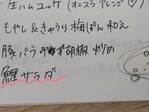 生ハムユッケ(オニスラアレンジ)
もやし&きゅうり梅ぽん和え
豚バラ ゆず胡椒炒め
鯉サラダ